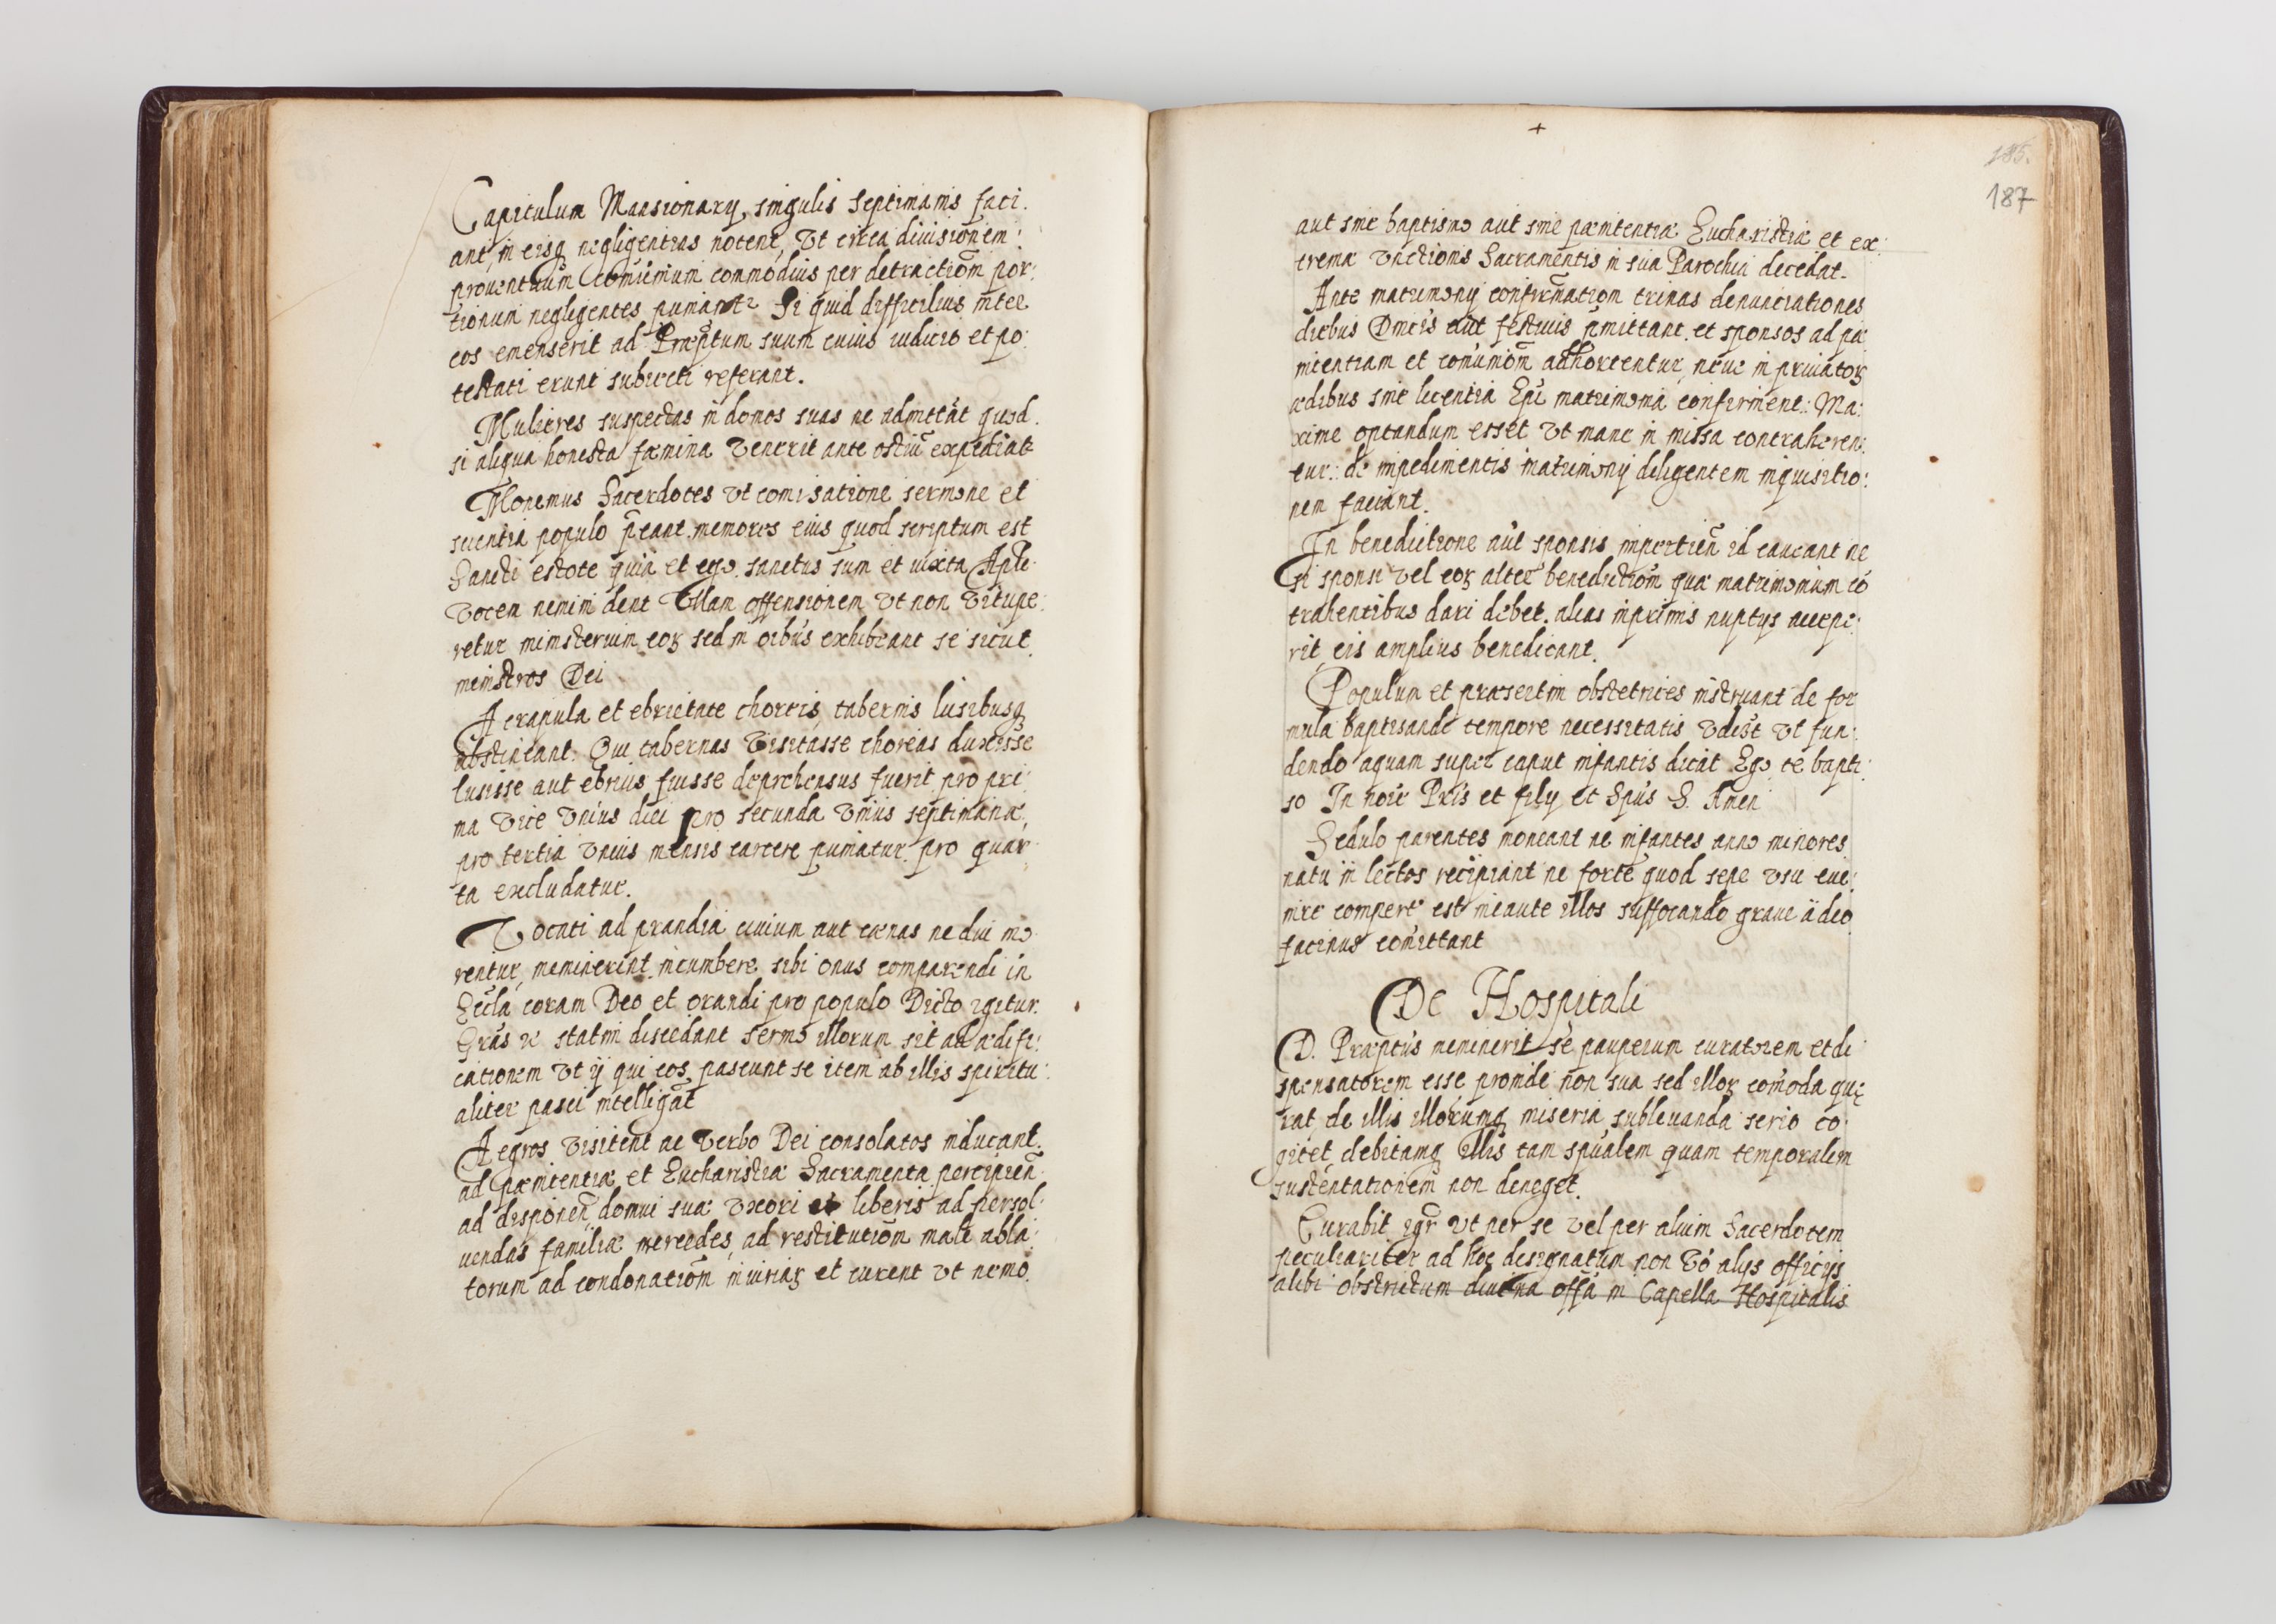 Capitulum Mansionarÿ, singulis septimanis faci.
ant, in eisq negligentias notent, Vt circa diuisionem:
prouentuum comunium commodius per detractiōm por:
tionum negligentes puniantr Si quid difficilius inter
eos emenserit ad Præptum suum cuius iudicio et po:
testati erunt subiecti referant.
Mulieres suspectas in domos suas ne admittāt quod.
si aliqua honesta fæmina Venerit ante ostiū expediat
Monemus Sacerdotes vt conuersatione sermone et
scientia populo p̄eant. memores eius quod scriptum est
Sancti estote quia et ego sanctus sum et iuxta Apli
vocem nemini dent Vllam offensionem vt non Vitupe:
retur ministerium eoꝝ sed in oibus exhibeant se sicut
ministros Dei
A crapula et ebrietate choreis tabernis lusibusq
abstineant. Qui tabernas Visitasse choreas duxisse
lusisse aut ebrius fuisse deprehensus fuerit pro pri:
ma Vice Vnius diei pro secunda Vnius septimanæ,
pro tertia Vnius mensis carcere puniatur. pro quar
ta excludatur.
Vocati ad prandia ciuium aut cænas ne diu mo
rentur, meminerint incumbere sibi onus comparendi in
Eccla coram Deo et orandi pro populo Dicto igitur.
Gras &c statim discedant sermo illorum sit ad ædifi:
cationem Vt ÿ qui eos pascunt se item ab illis spiritu:
aliter pasci intelligāt
Aegros visitent ac Verbo Dei consolatos inducant.
ad pænitentiæ et Eucharistiæ Sacramenta percipien̄
ad disponen̄ domui suæ vxori et liberis ad persol:
uendas familiæ mercedes, ad restitutiōm male abla:
torum ad condonatiōm iniuriaꝝ et curent vt nemo.
+
185.
187
aut sine baptismo aut sine pænitentiæ Eucharistiæ et ex:
tremæ vnctionis Sacramentis in sua Parochia decedat.
Ante matrimonÿ confirmation trinas denunciationes
diebus Dnicis aut festiuis p̄mittant. et sponsos ad pæ
nitentiam et comuniōm adhortentur, neue in priuatoꝝ
ædibus sine licentia Epi matrimonia confirment: Ma:
xime optandum esset vt mane in missa contraheren:
tur: de impedimentis matrimonÿ diligentem inquisitio:
nem faciant.
In benedictione aut sponsis impertien̄ id caueant ne
si sponsi vel eoꝝ alter benedictiōm quæ matrimonium cō
trahentibus dari debet. alias in primis nuptÿs accepe:
rit, eis amplius benedicant.
Populum et præsertim obstetrices instruant de for
mula baptisandi tempore necessitatis vdist vt fun:
dendo aquam super caput infantis dicat Ego te bapti:
so In noie Pris et filÿ et Spus S. Amen
Sedulo parentes moneant ne infantes anno minores
natu in lectos recipiant ne forte quod sepe vsu eue:
nire compert est incaute illos suffocando graue adeo
facinus comittant
De Hospitali
D. Præptus meminerit se pauperum curatorem et di
spensatorem esse proinde non sua sed illoꝝ comoda quę
rat de illis illorumq miseria subleuanda serio co
gitet debitamq illis tam spualem quam temporalem
sustentationem non deneget.
Curabit igr vt per se vel per alium Sacerdotem
peculiariter ad hoc designatum non Vo alÿs officÿs
alibi obstrictum diuina offa in Capella Hospitalis